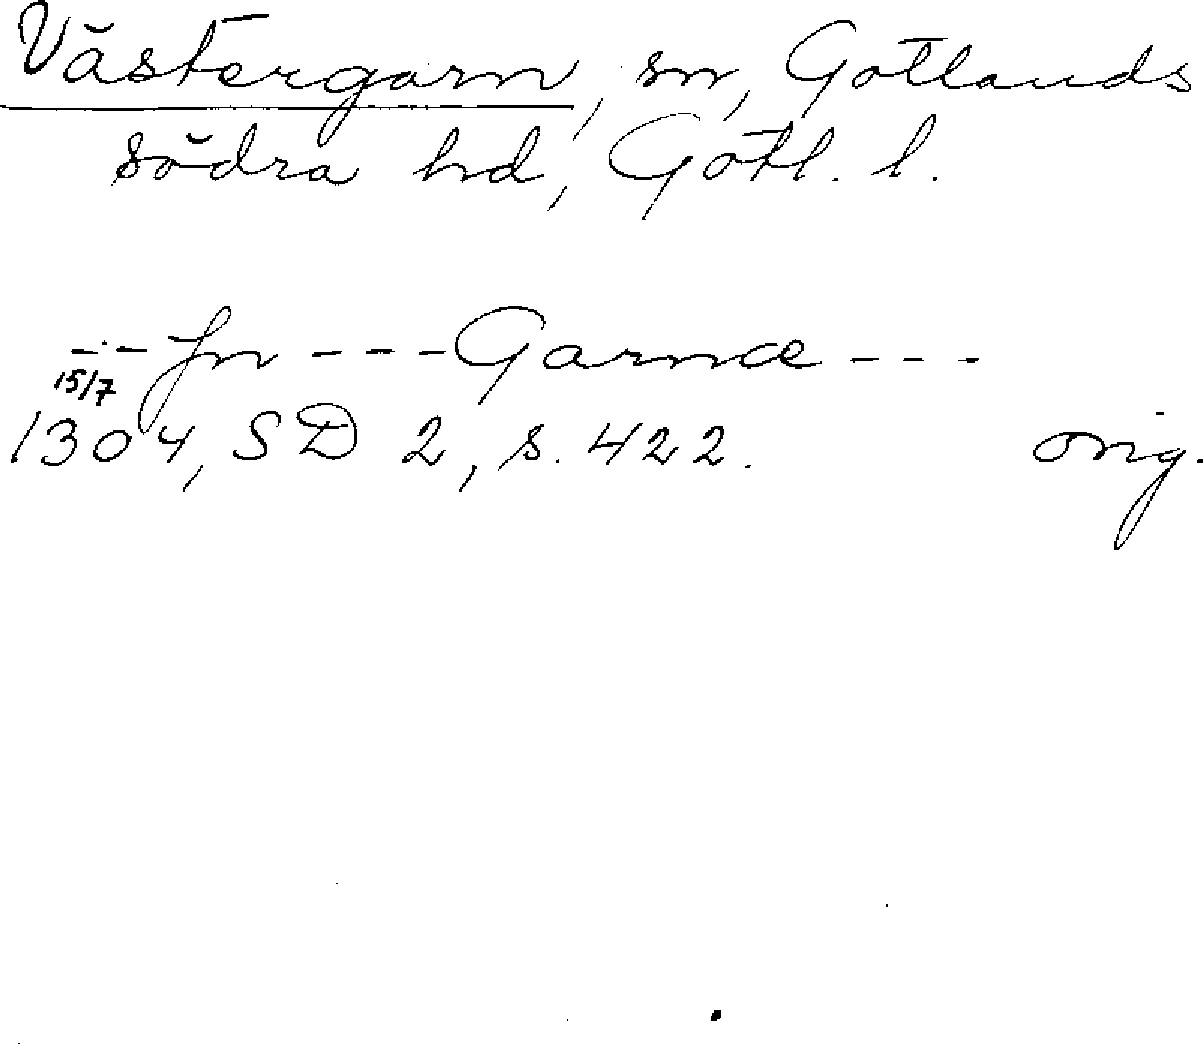 Västergarn, sn, Gotlands
södra hd, Gotl. l.
--- Jn --- Garnæ ---
15/7
1304, SD 2, s. 422. orig.